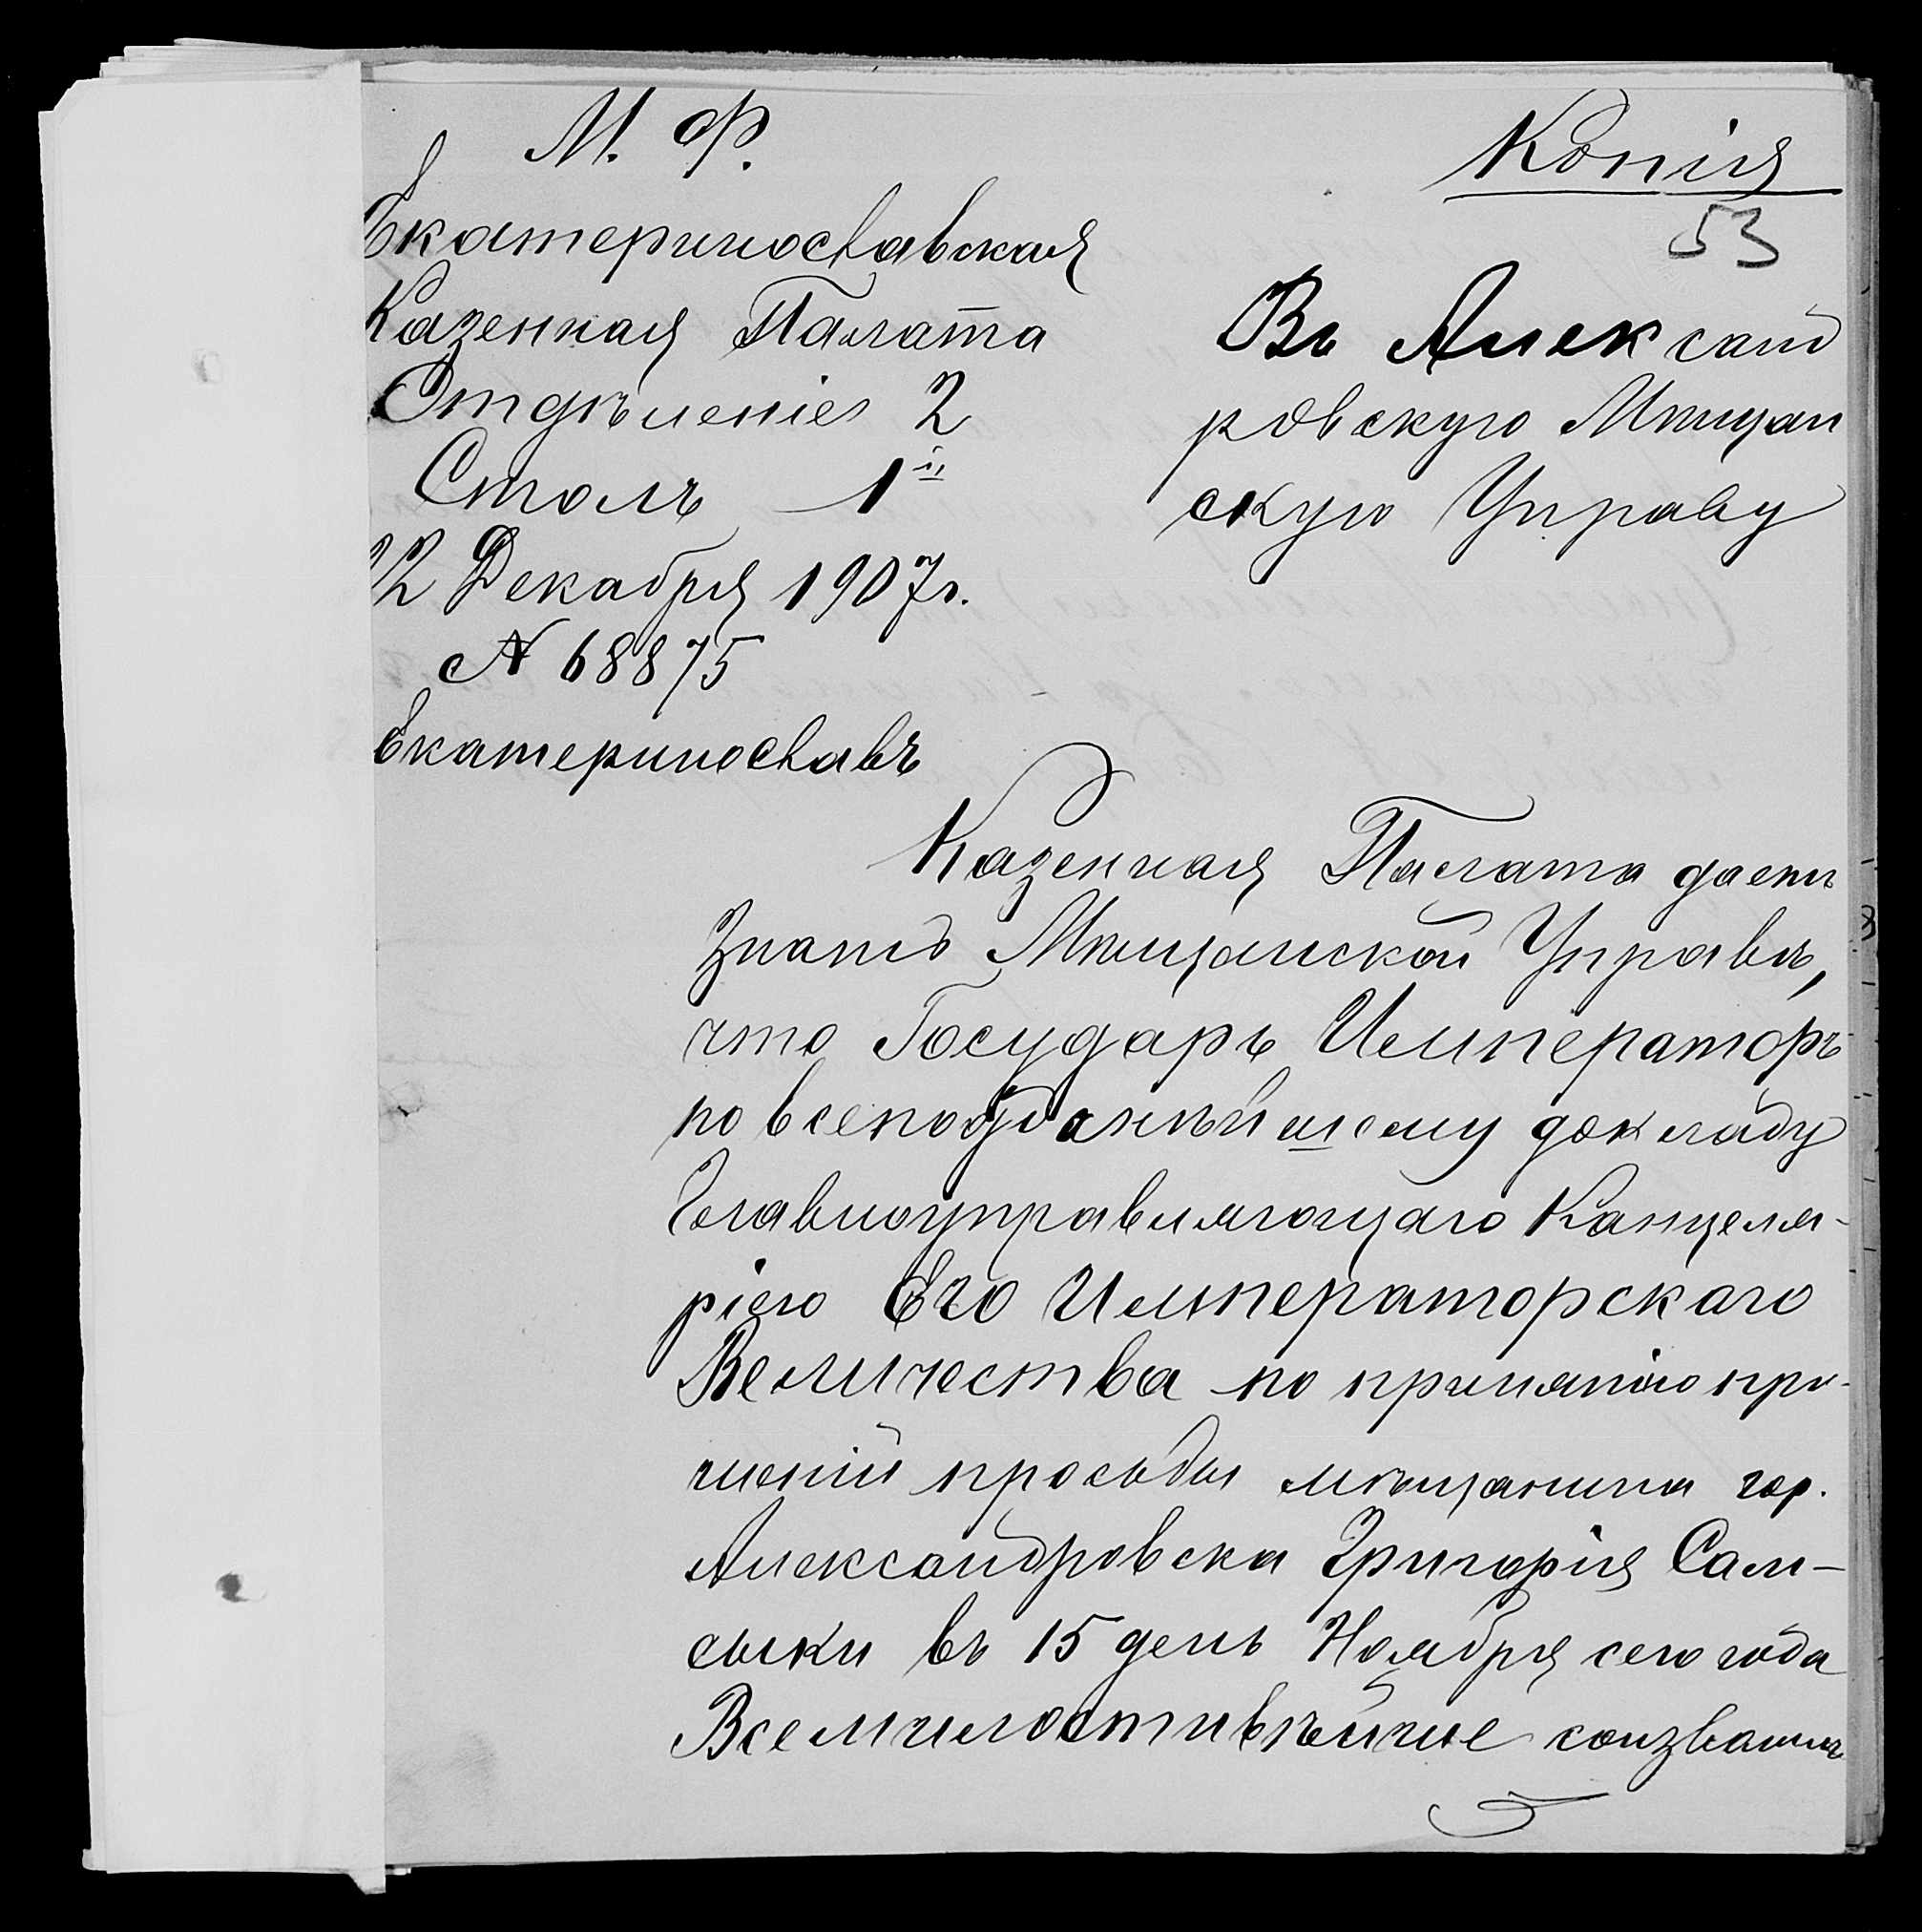 М. Ф.
Екатеринославская
Казенная Палата
Отдѣленіе 2
Столъ 1й
12 Декабря 1907 г.
№ 68875
Екатеринославъ
Копія
53
Въ Александ
ровскую Мѣщан
скую Управу
Казенная Палата даетъ
знать Мѣщанской Управѣ,
что Государь Императоръ
по всеподданнѣйшему докладу
Главноуправляющаго Канцеля-
ріею Его Императорскаго
Величества по принятію про-
шеній просьбы мѣщанина гор.
Александровска Григорія Сам-
сыки въ 15 день Ноября сего года
Всемилостивѣйше соизволилъ